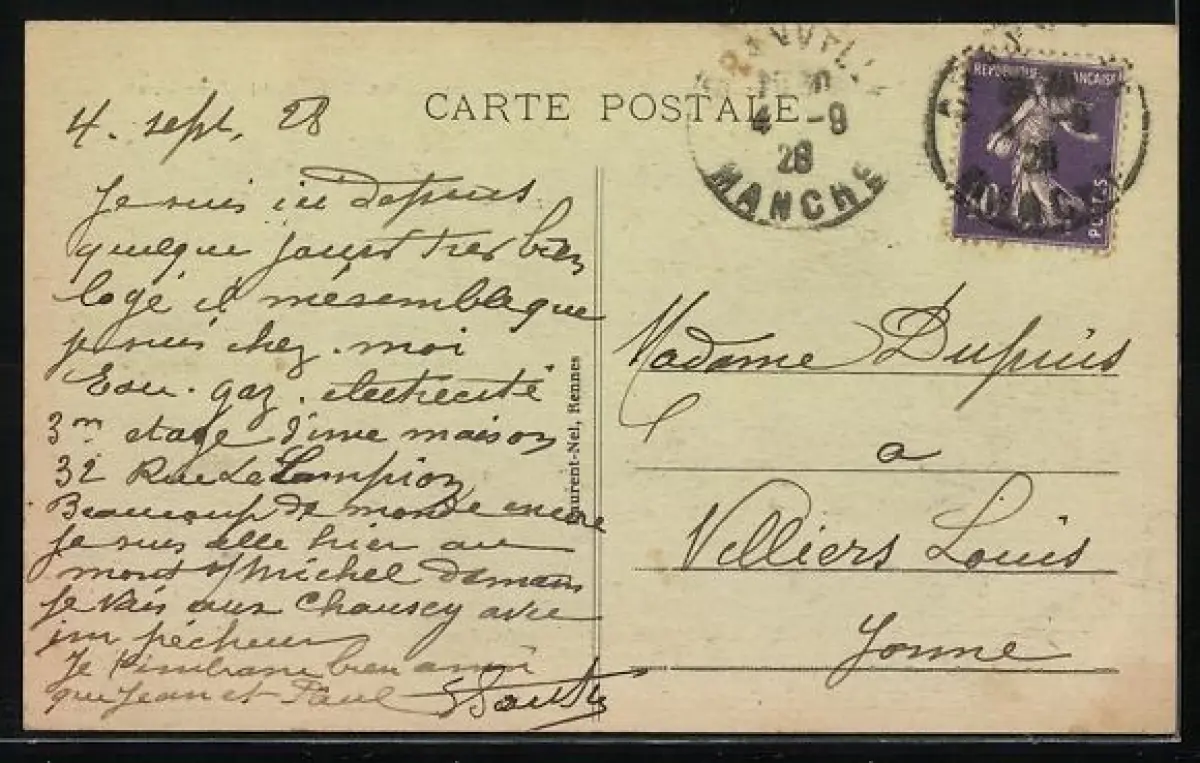 CARTE POSTALE
4. sept. 28
Je suis ici depuis
quelque jours trer bien
logé il mésemble que
je suis chez. moi
Eau. gaz. electrecité
3m etage d'une maison
32 Rue Le Campion
Beaucoup de monde encore
Je suis alle hier au
mont St Michel demain
Je vais aux Chausey avec
un pécheur
Je t'embrasse bien ainsi
que Jean et Paul
Laurent-Nel, Rennes
GRANVILLE
4 -9
28
MANCHE
REPUBLIQUE FRANÇAISE
POSTES
Madame Dupuis
a
Villiers Louis
Yonne